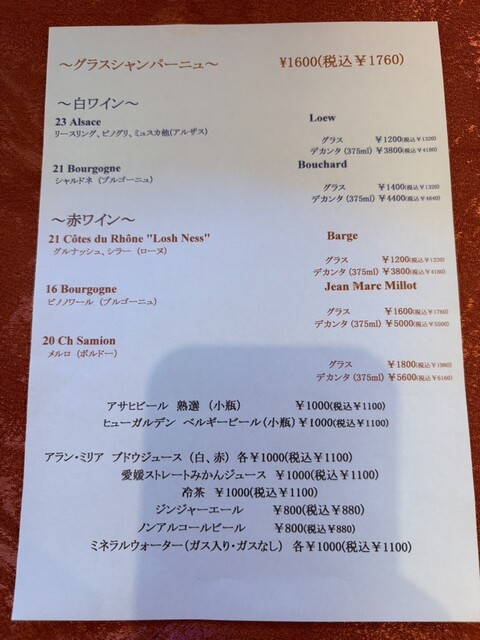 ～グラスシャンパーニュ～ ¥1600(税込￥1760)
～白ワイン～
23 Alsace Loew
リースリング、ピノグリ、ミュスカ他(アルザス)
グラス ￥1200(税込￥1320)
デカンタ (375ml) ￥3800(税込￥4180)
21 Bourgogne Bouchard
シャルドネ (ブルゴーニュ)
グラス ￥1400(税込￥1320)
デカンタ (375ml) ￥4400(税込￥4840)
～赤ワイン～
21 Côtes du Rhône "Losh Ness" Barge
グルナッシュ、シラー (ローヌ)
グラス ￥1200(税込￥1320)
デカンタ (375ml) ￥3800(税込￥4180)
16 Bourgogne Jean Marc Millot
ピノノワール (ブルゴーニュ)
グラス ￥1600(税込￥1760)
デカンタ (375ml) ￥5000(税込￥5500)
20 Ch Samion
メルロ (ボルドー)
グラス ￥1800(税込￥1980)
デカンタ (375ml) ￥5600(税込￥6160)
アサヒビール 熟選 (小瓶) ￥1000(税込￥1100)
ヒューガルデン ベルギービール(小瓶)￥1000(税込￥1100)
アラン・ミリア ブドウジュース (白、赤) 各￥1000(税込￥1100)
愛媛ストレートみかんジュース ￥1000(税込￥1100)
冷茶 ￥1000(税込￥1100)
ジンジャーエール ￥800(税込￥880)
ノンアルコールビール ￥800(税込￥880)
ミネラルウォーター(ガス入り・ガスなし) 各￥1000(税込￥1100)